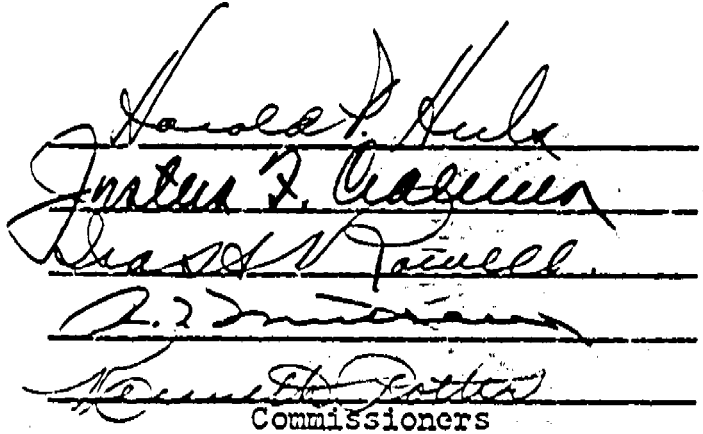 Harold P. Huls
Justus F. Craemer
Rowell
Kenneth Potter
Commissioners